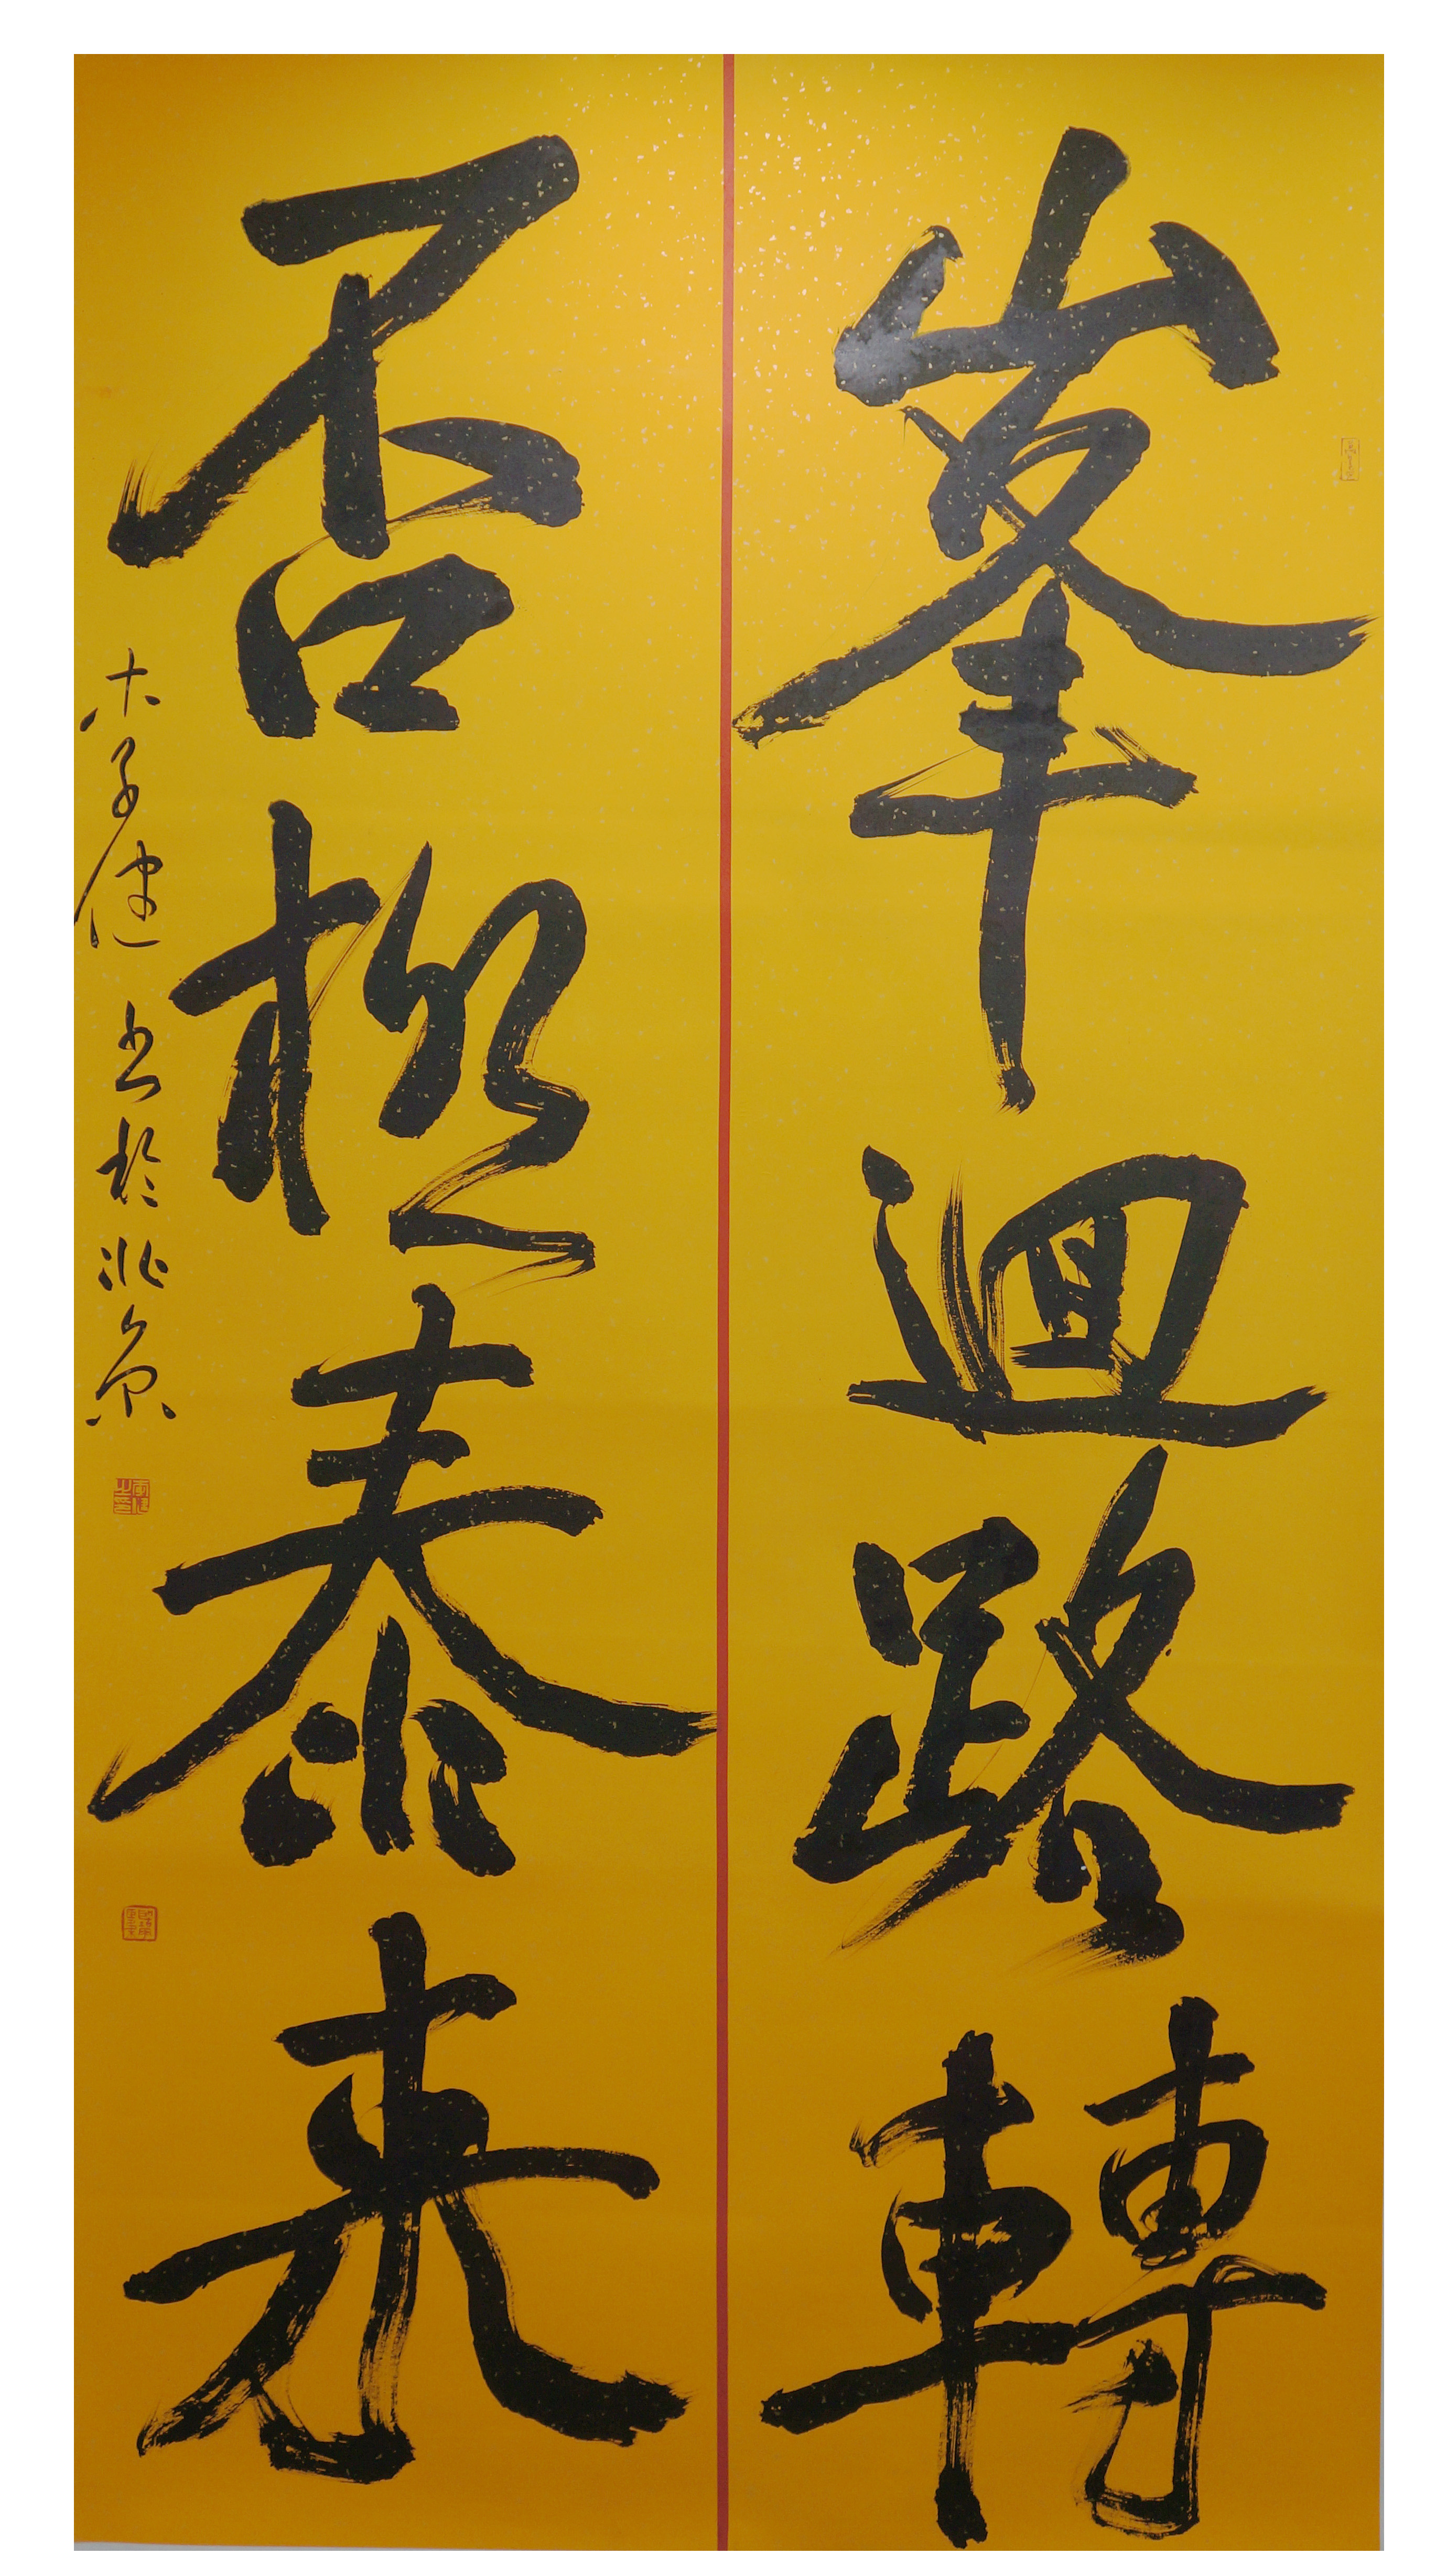 峯迴路轉
否極泰來
木子健書於北京